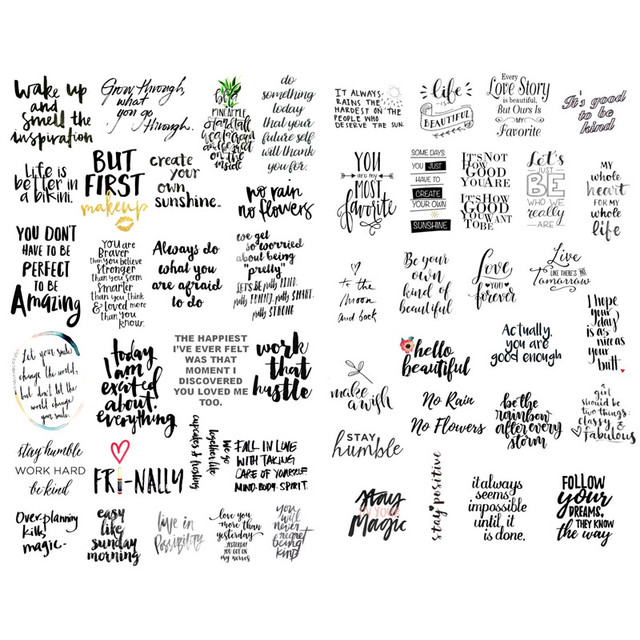 wake up
and
smell the
inspiration
Grow through,
what
you go
through.
be a
PINEAPPLE
stand tall
wear a crown
and be sweet
on the
inside
do
something
today
that your
future self
will thank
you for.
Life is
better in
a bikini.
BUT
FIRST
makeup
create
your
own
sunshine.
no rain
no flowers
YOU DON'T
HAVE TO BE
PERFECT
TO BE
Amazing
YOU ARE
Braver
than you believe
Stronger
Than you seem
Smarter
than you think
& Loved more
than you
know.
Always do
what you
are afraid
to do
we get
so worried
about being
"pretty"
LET'S BE pretty KIND
pretty FUNNY, pretty SMART,
pretty STRONG
Let your smile
change the world,
but don't let the
world change
your smile.
today
I am
excited
about.
everything
THE HAPPIEST
I'VE EVER FELT
WAS THAT
MOMENT I
DISCOVERED
YOU LOVED ME
TOO.
work
that
hustle
stay humble
WORK HARD
be kind
FRI-NALLY
we go
together like
cupcakes & frosting
FALL IN LOVE
WITH TAKING
CARE OF YOURSELF
MIND. BODY. SPIRIT.
Over-planning
kills
magic.
easy
like
sunday
morning
live in
possibility
love you
more than
yesterday
YESTERDAY
YOU GOT ON
MY NERVES
you
will
never
regret
being
kind
IT ALWAYS
RAINS THE
HARDEST ON
PEOPLE WHO
DESERVE THE SUN.
life
is
BEAUTIFUL
Every
Love Story
is beautiful,
But Ours Is
My
Favorite
It's good
to be
kind
YOU
are my
MOST
favorite
SOME DAYS
YOU JUST
HAVE TO
CREATE
YOUR OWN
SUNSHINE
IT'S NOT
HOW
GOOD
YOU ARE
IT'S HOW
GOOD
YOU WANT
TO BE
Let's
JUST
BE
WHO WE
really
ARE
MY
whole
heart
FOR MY
whole
life
to the
Moon
and back
Be your
own
kind of
beautiful
Love
YOU
forever
Live
LIKE THERE'S NO
Tomorrow
I hope
your
day is
as nice
as your
butt.
make
a wish
hello
beautiful
Actually,
you are
good enough
No Rain
No Flowers
be the
rainbow
after every
storm
a
girl
should be
two things:
classy
&
fabulous
STAY
humble
Stay
IN YOUR
Magic
stay positive
it always
seems
impossible
until, it
is done.
FOLLOW
your
DREAMS,
THEY KNOW
the way